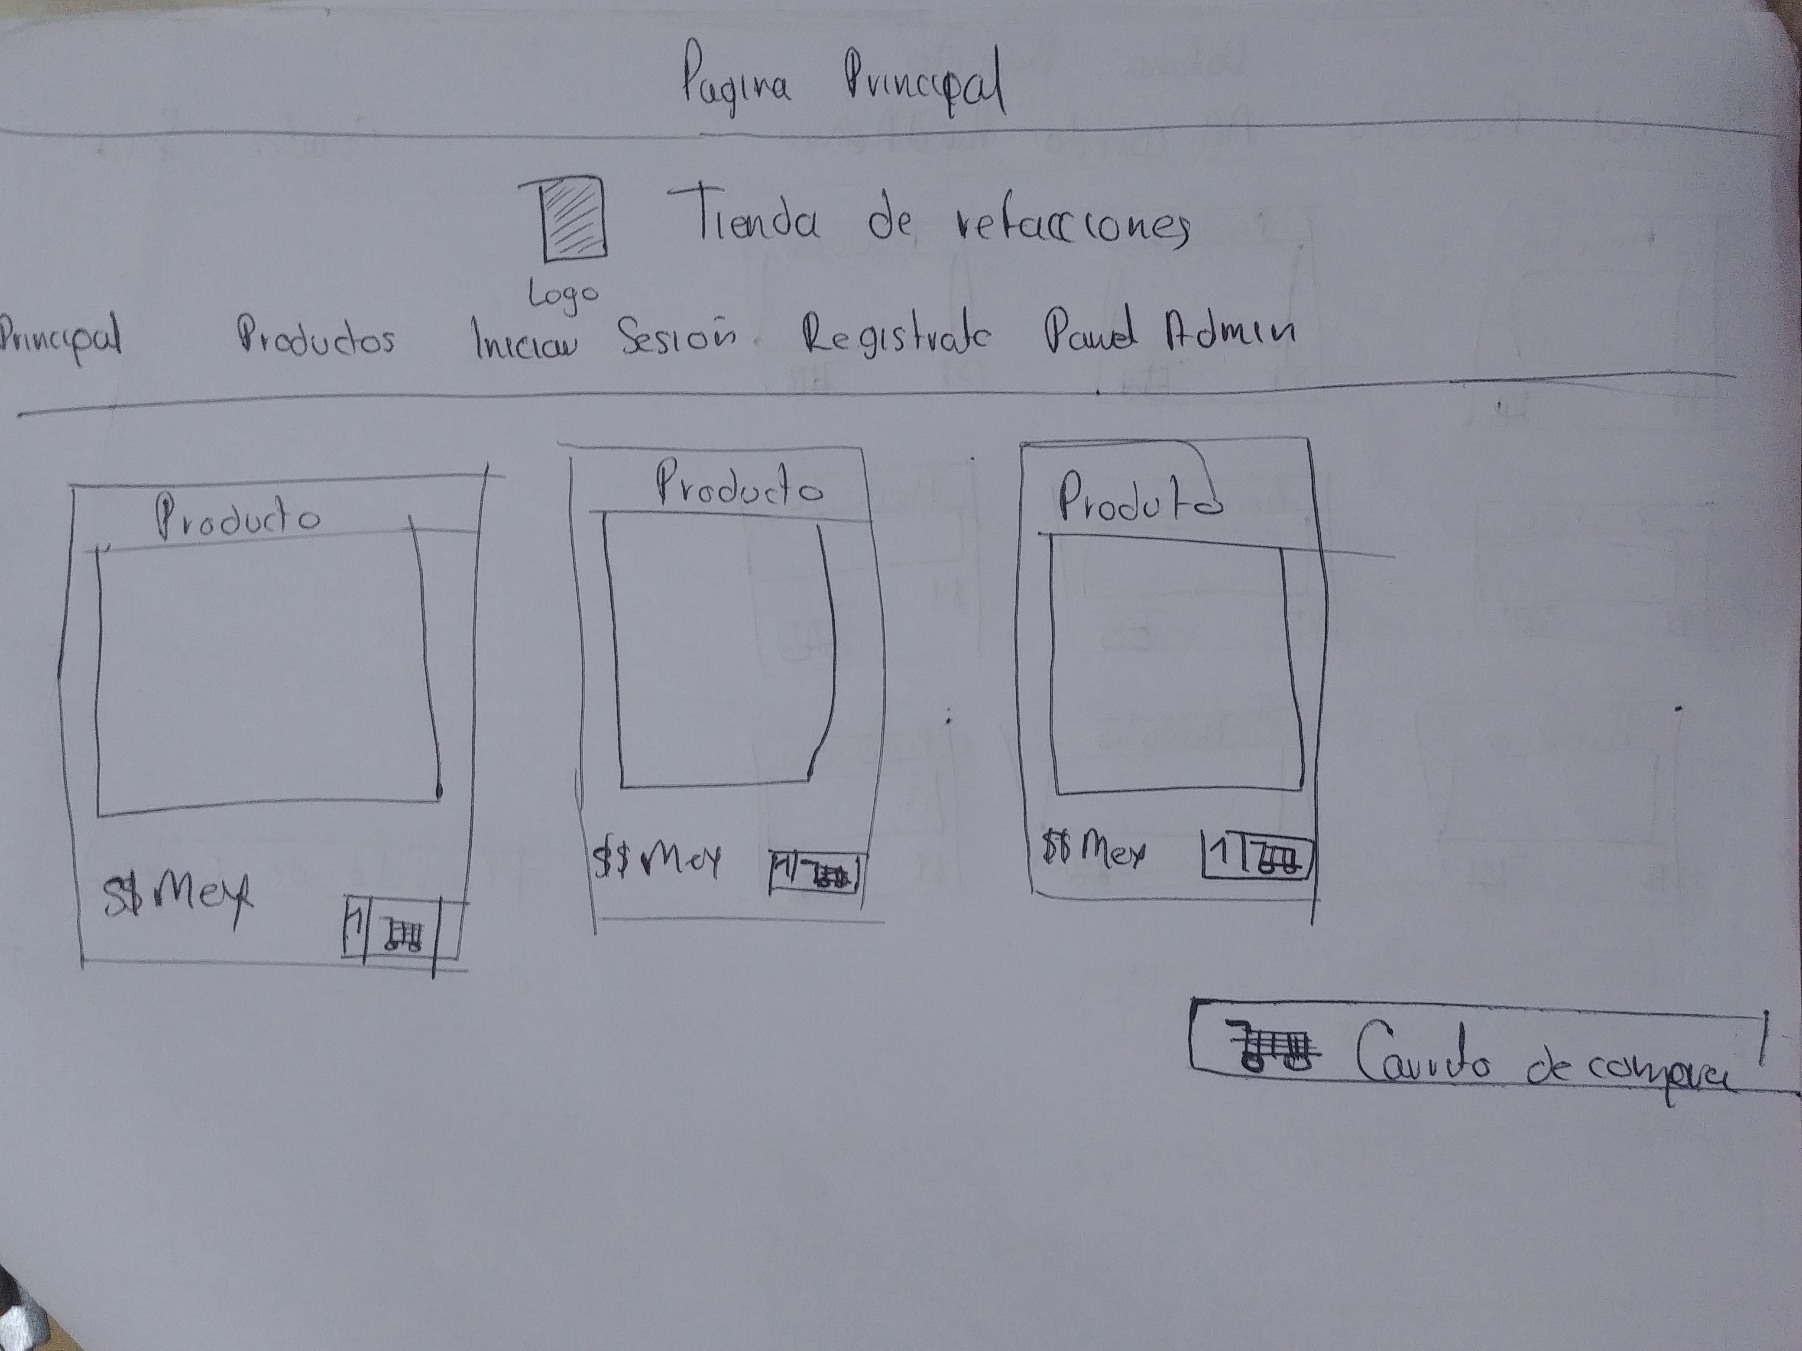 Pagina Principal
Tienda de refacciones
Logo
Principal Productos Iniciar Sesión Registrate Panel Admin
Producto Producto Produto
$$ Mex 1 $$ Mex 1 $$ Mex 1
Carrito de compra